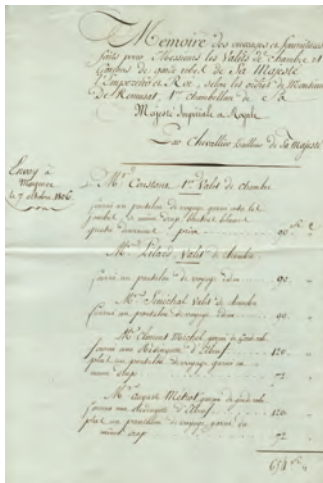 Mémoire des ouvrages et fournitures
faits pour Messieurs les Valets de chambre et
Garçons de garde robe de Sa Majesté
L'Empereur et Roi, selon les ordres de Monsieur
De Remusat, 1er chambellan de Sa
Majesté Impériale et Royale
Par Chevallier Tailleur de Sa Majesté
Envoy à
Mayence
le 7 octobre 1806
Mr Constant 1er Valet de chambre
fourni un pantalon de voyage
drap
90
Mr Pelard Valet de chambre
fourni un pantalon de voyage idem 90
Mr Sénéchal Valet de chambre
fourni un pantalon de voyage idem 90
Mr Clément Michel garçon de garde robe
fourni une Redingotte d'Elbeuf 120
plus un pantalon de voyage garni en
même drap 72
Mr Auguste garçon de garde robe
fourni une Redingotte d'Elbeuf 120
plus un pantalon de voyage garni de
même drap 72
654